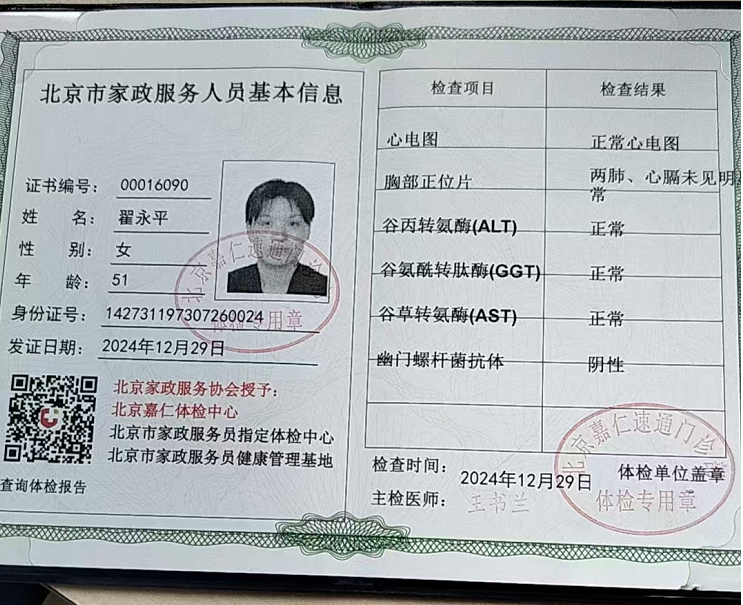 北京市家政服务人员基本信息
证书编号： 00016090
姓 名： 翟永平
性 别： 女
年 龄： 51
身份证号： 142731197307260024
发证日期： 2024年12月29日
北京嘉仁速通门诊
体检专用章
北京家政服务协会授予：
北京嘉仁体检中心
北京市家政服务员指定体检中心
北京市家政服务员健康管理基地
查询体检报告
检查项目 检查结果
心电图 正常心电图
胸部正位片 两肺、心膈未见明
常
谷丙转氨酶(ALT) 正常
谷氨酰转肽酶(GGT) 正常
谷草转氨酶(AST) 正常
幽门螺杆菌抗体 阴性
检查时间： 2024年12月29日 体检单位盖章
主检医师： 王书兰
北京嘉仁速通门诊
体检专用章